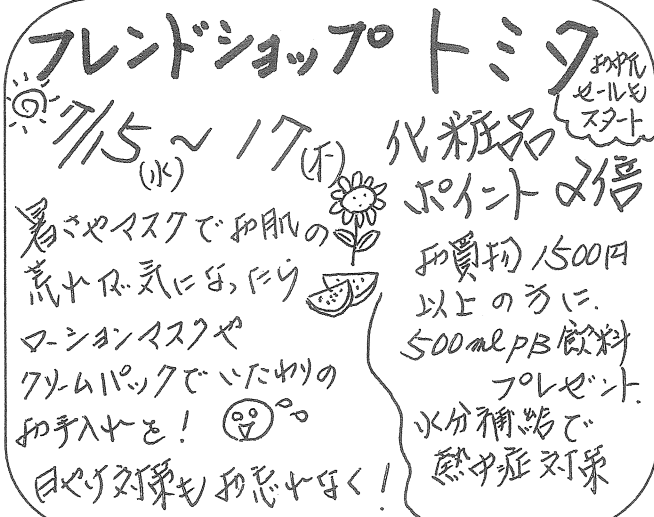 フレンドショップ トミタ
お中元
セールも
スタート
7/15(水)～17(木)
暑さやマスクでお肌の
荒れが気になったら
ローションマスクや
クリームパックでいたわりの
お手入れを！
日やけ対策もお忘れなく！
化粧品
ポイント2倍
お買物1500円
以上の方に、
500ml PB飲料
プレゼント。
水分補給で
熱中症対策